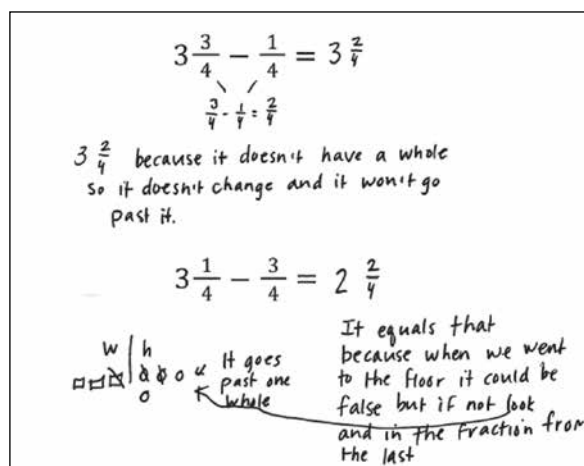 3 3/4 − 1/4 = 3 2/4
3/4 - 1/4 = 2/4
3 2/4 because it doesn't have a whole
so it doesn't change and it won't go
past it.
3 1/4 − 3/4 = 2 2/4
w h
It goes
past one
whole
It equals that
because when we went
to the floor it could be
false but if not look
and in the fraction from
the last